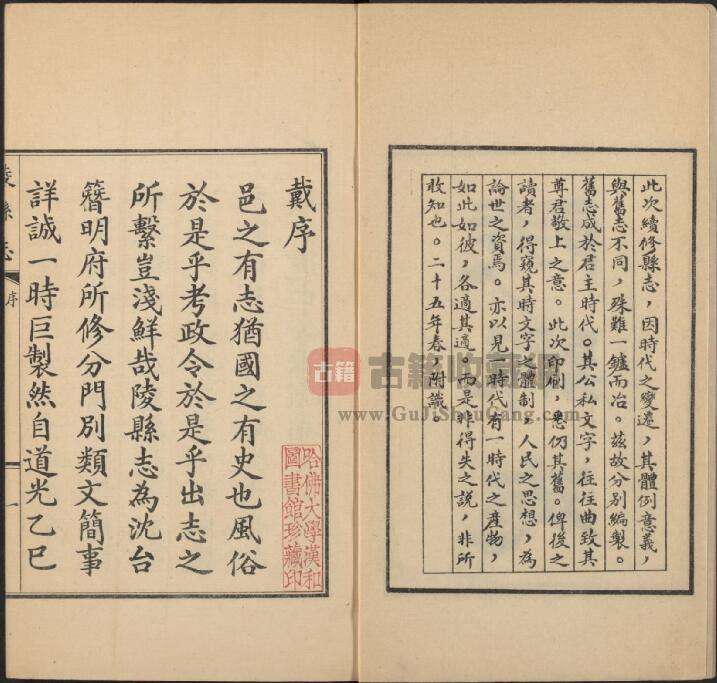 此次續修縣志，因時代之變遷，其體例意義，
與舊志不同，殊難一鑪而冶。茲故分別編製。
舊志成於君主時代。其公私文字，往往曲致其
尊君敬上之意。此次印刷，悉仍其舊。俾後之
讀者，得窺其時文字之體制，人民之思想，為
論世之資焉。亦以見一時代有一時代之產物，
如此如彼，各適其適。而是非得失之說，非所
敢知也。二十五年春，附識
戴序
邑之有志猶國之有史也風俗
於是乎考政令於是乎出志之
所繫豈淺鮮哉陵縣志為沈台
簪明府所修分門別類文簡事
詳誠一時巨製然自道光乙巳
陵縣志
序
一
哈佛大學漢和
圖書館珍藏印
古籍
古籍收藏网
www.GuJiShouCang.com